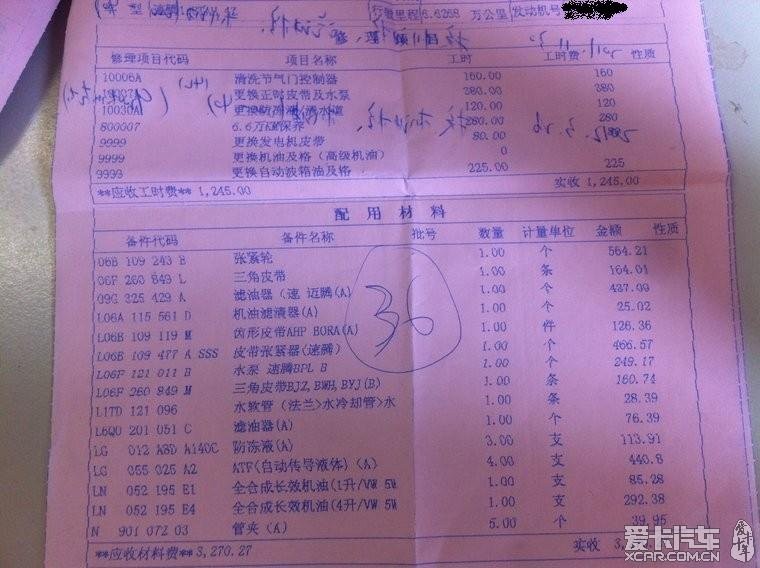 行驶里程 6.6268 万公里 发动机号
修理项目代码 项目名称 工时 工时费 性质
10006A 清洗节气门控制器 160.00 160
更换正时皮带及水泵 380.00 380
10030A 120.00 120
800007 6.6万KM保养 280.00 280
9999 更换发电机皮带 80.00
9999 更换机油及格（高级机油） 0
9999 更换自动波箱油及格 225.00 225
**应收工时费** 1,245.00 实收 1,245.00
配用材料
备件代码 备件名称 批号 数量 计量单位 金额 性质
06B 109 243 B 张紧轮 1.00 个 564.21
06F 260 849 L 三角皮带 1.00 条 164.01
09G 325 429 A 滤油器（速 迈腾(A) 1.00 个 437.09
L06A 115 561 D 机油滤清器(A) 1.00 个 25.02
L06B 109 119 M 齿形皮带AHP BORA(A) 1.00 件 126.36
L06B 109 477 A SSS 皮带张紧器(速腾) 1.00 个 466.57
L06F 121 011 B 水泵 速腾BPL B 1.00 个 249.17
L06F 260 849 M 三角皮带BJZ,BWH,BYJ(B) 1.00 条 160.74
L1TD 121 096 水软管（法兰>水冷却管>水 1.00 条 28.39
L6Q0 201 051 C 滤油器(A) 1.00 个 76.39
LG 012 A8D A140C 防冻液(A) 3.00 支 113.91
LG 055 025 A2 ATF(自动传导液体) (A) 4.00 支 440.8
LN 052 195 E1 全合成长效机油(1升/VW 5W 1.00 支 85.28
LN 052 195 E4 全合成长效机油(4升/VW 5W 1.00 支 292.38
N 901 072 03 管夹(A) 5.00 个 39.95
**应收材料费** 3,270.27 实收
36
爱卡汽车
XCAR.COM.CN